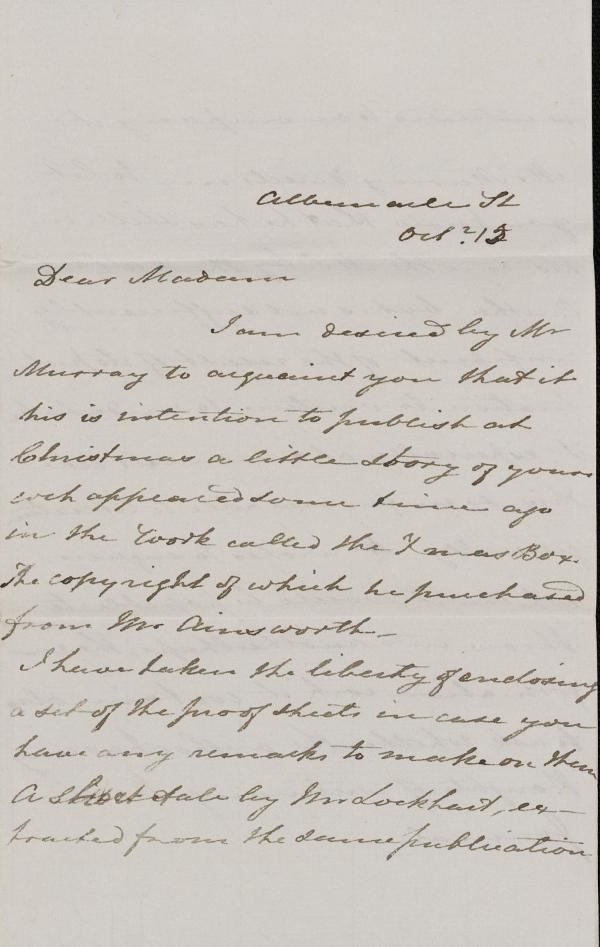 Albemarle St
Oct. 13
Dear Madam
I am desired by Mr
Murray to acquaint you that it
his is intention to publish at
Christmas a little story of yours
wch appeared some time ago
in the work called the Xmas Box.
The copyright of which he purchased
from Mr Ainsworth_
I have taken the liberty of enclosing
a set of the proof sheets in case you
have any remarks to make on them
A short tale by Mr Lockhart, ex-
tracted from the same publication